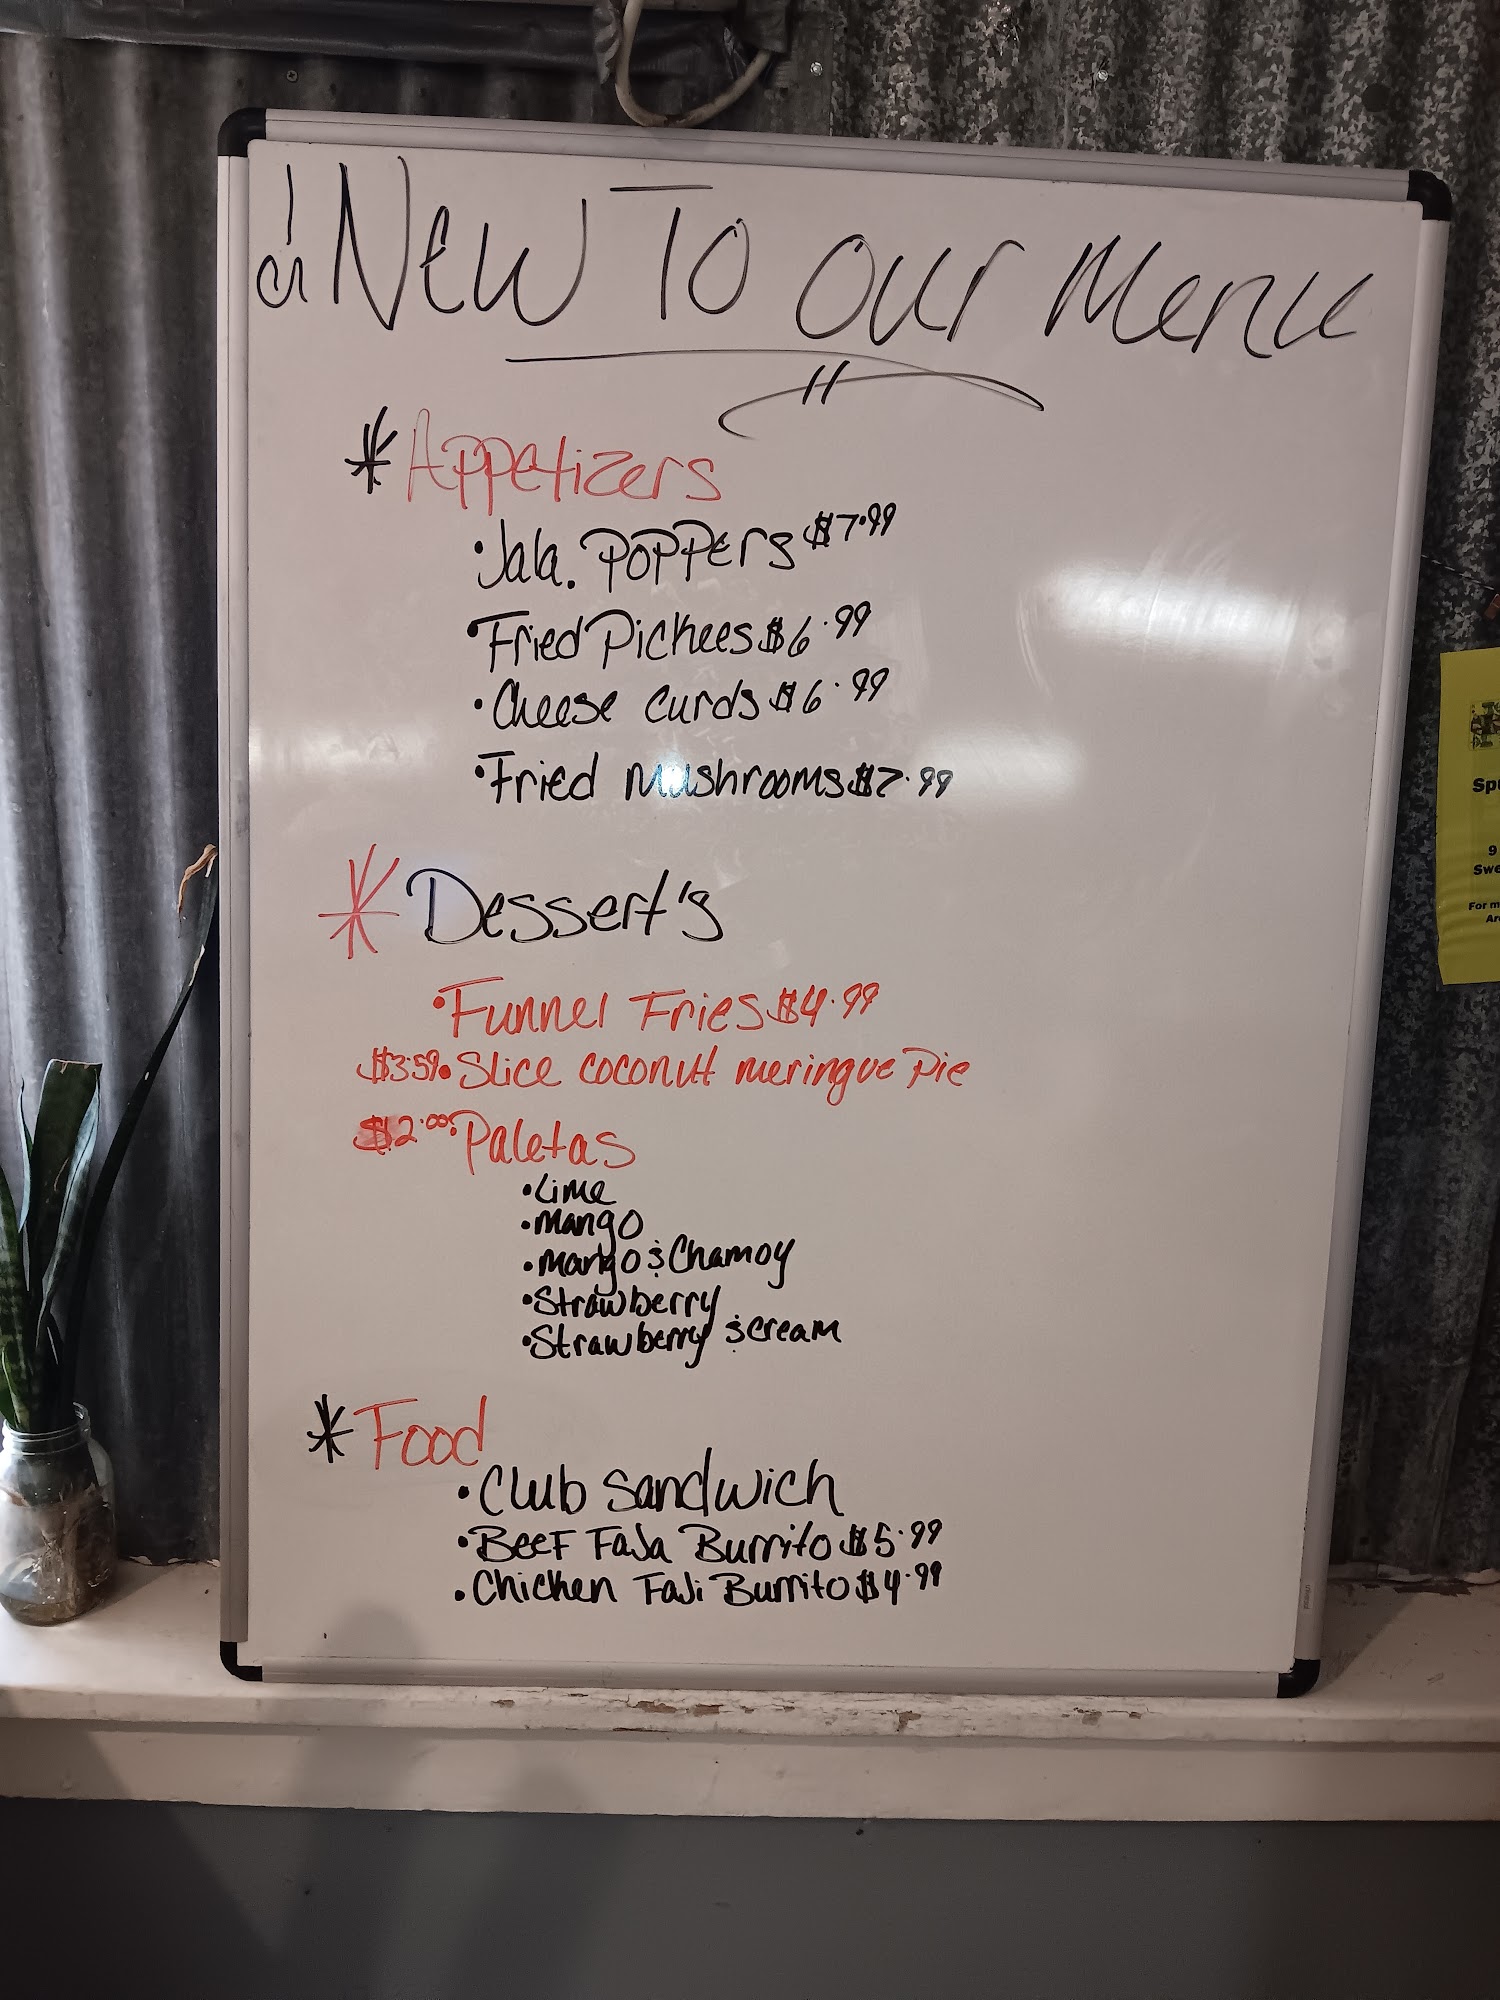 New To Our Menu
* Appetizers
• Jala. Poppers $7.99
• Fried Pickees $6.99
• Cheese Curds $6.99
• Fried Mushrooms $7.99
* Dessert's
• Funnel Fries $4.99
$3.59 • Slice coconut meringue Pie
$2.00 • Paletas
• Lime
• Mango
• Mango & Chamoy
• Strawberry
• Strawberry & cream
* Food
• Club Sandwich
• Beef Faja Burrito $5.99
• Chicken Faji Burrito $4.99
Spu
9
Swe
For m
Ar